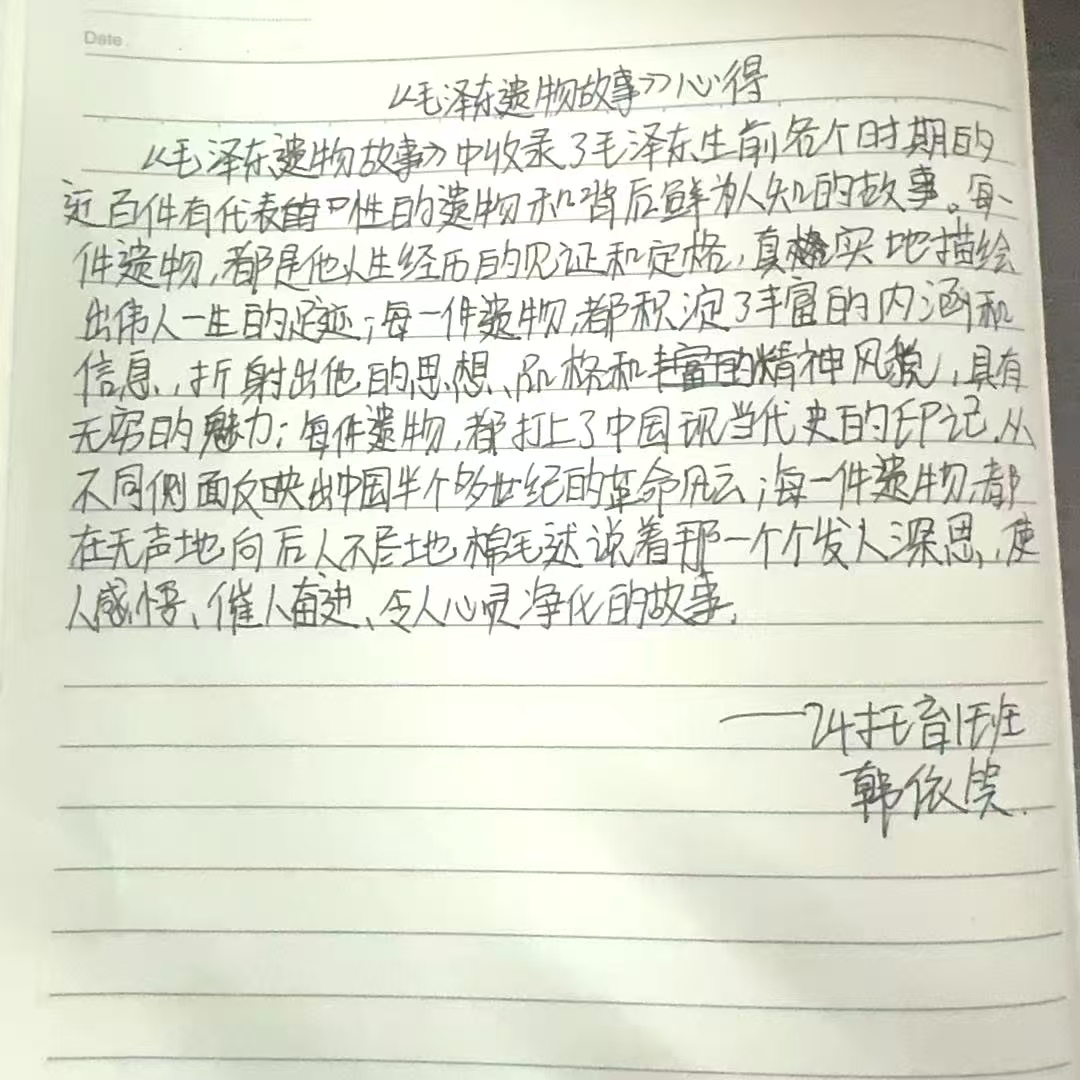 Date.
《毛泽东遗物故事》心得
《毛泽东遗物故事》中收录了毛泽东生前各个时期的
近百件有代表性的遗物和背后鲜为人知的故事。每
件遗物,都是他人生经历的见证和定格,真实地描绘
出伟人一生的足迹;每一件遗物,都积淀了丰富的内涵和
信息,折射出他的思想、品格和丰富的精神风貌,具有
无穷的魅力;每件遗物,都打上了中国现当代史的印记,从
不同侧面反映出中国半个多世纪的革命风云;每一件遗物,都
在无声地向后人不尽地述说着那一个个发人深思、使
人感悟、催人奋进、令人心灵净化的故事.
——24托育1班
韩依